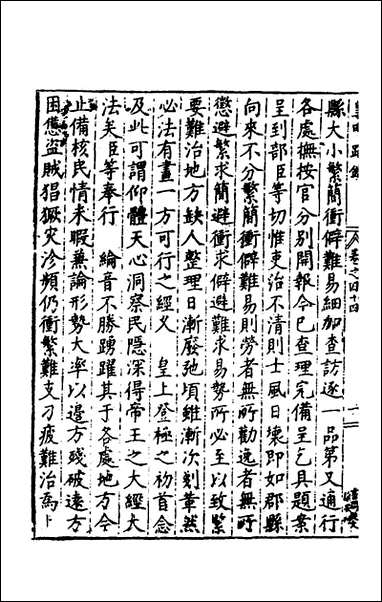 卷之四十四
縣大小繁簡衝僻難易細加查訪逐一品第又通行
各處撫按官分別開報今已查理完備呈乞具題案
呈到部臣等切惟吏治不清則士風日壞即如郡縣
向來不分繁簡衝僻難易則勞者無所勸逸者無所
懲避繁求簡避衝求僻避難求易勢所必至以致繁
要難治地方缺人整理日漸廢弛頃雖漸次剗革然
必法有畫一方可行之經久 皇上登極之初首念
及此可謂仰體天心洞察民隱深得帝王之大經大
法矣臣等奉行 綸音不勝踴躍其于各處地方今
止備核民情未暇兼論形勢大率以邊方殘破遠方
困憊盜賊猖獗災沴頻仍衝繁難支刁疲難治爲下